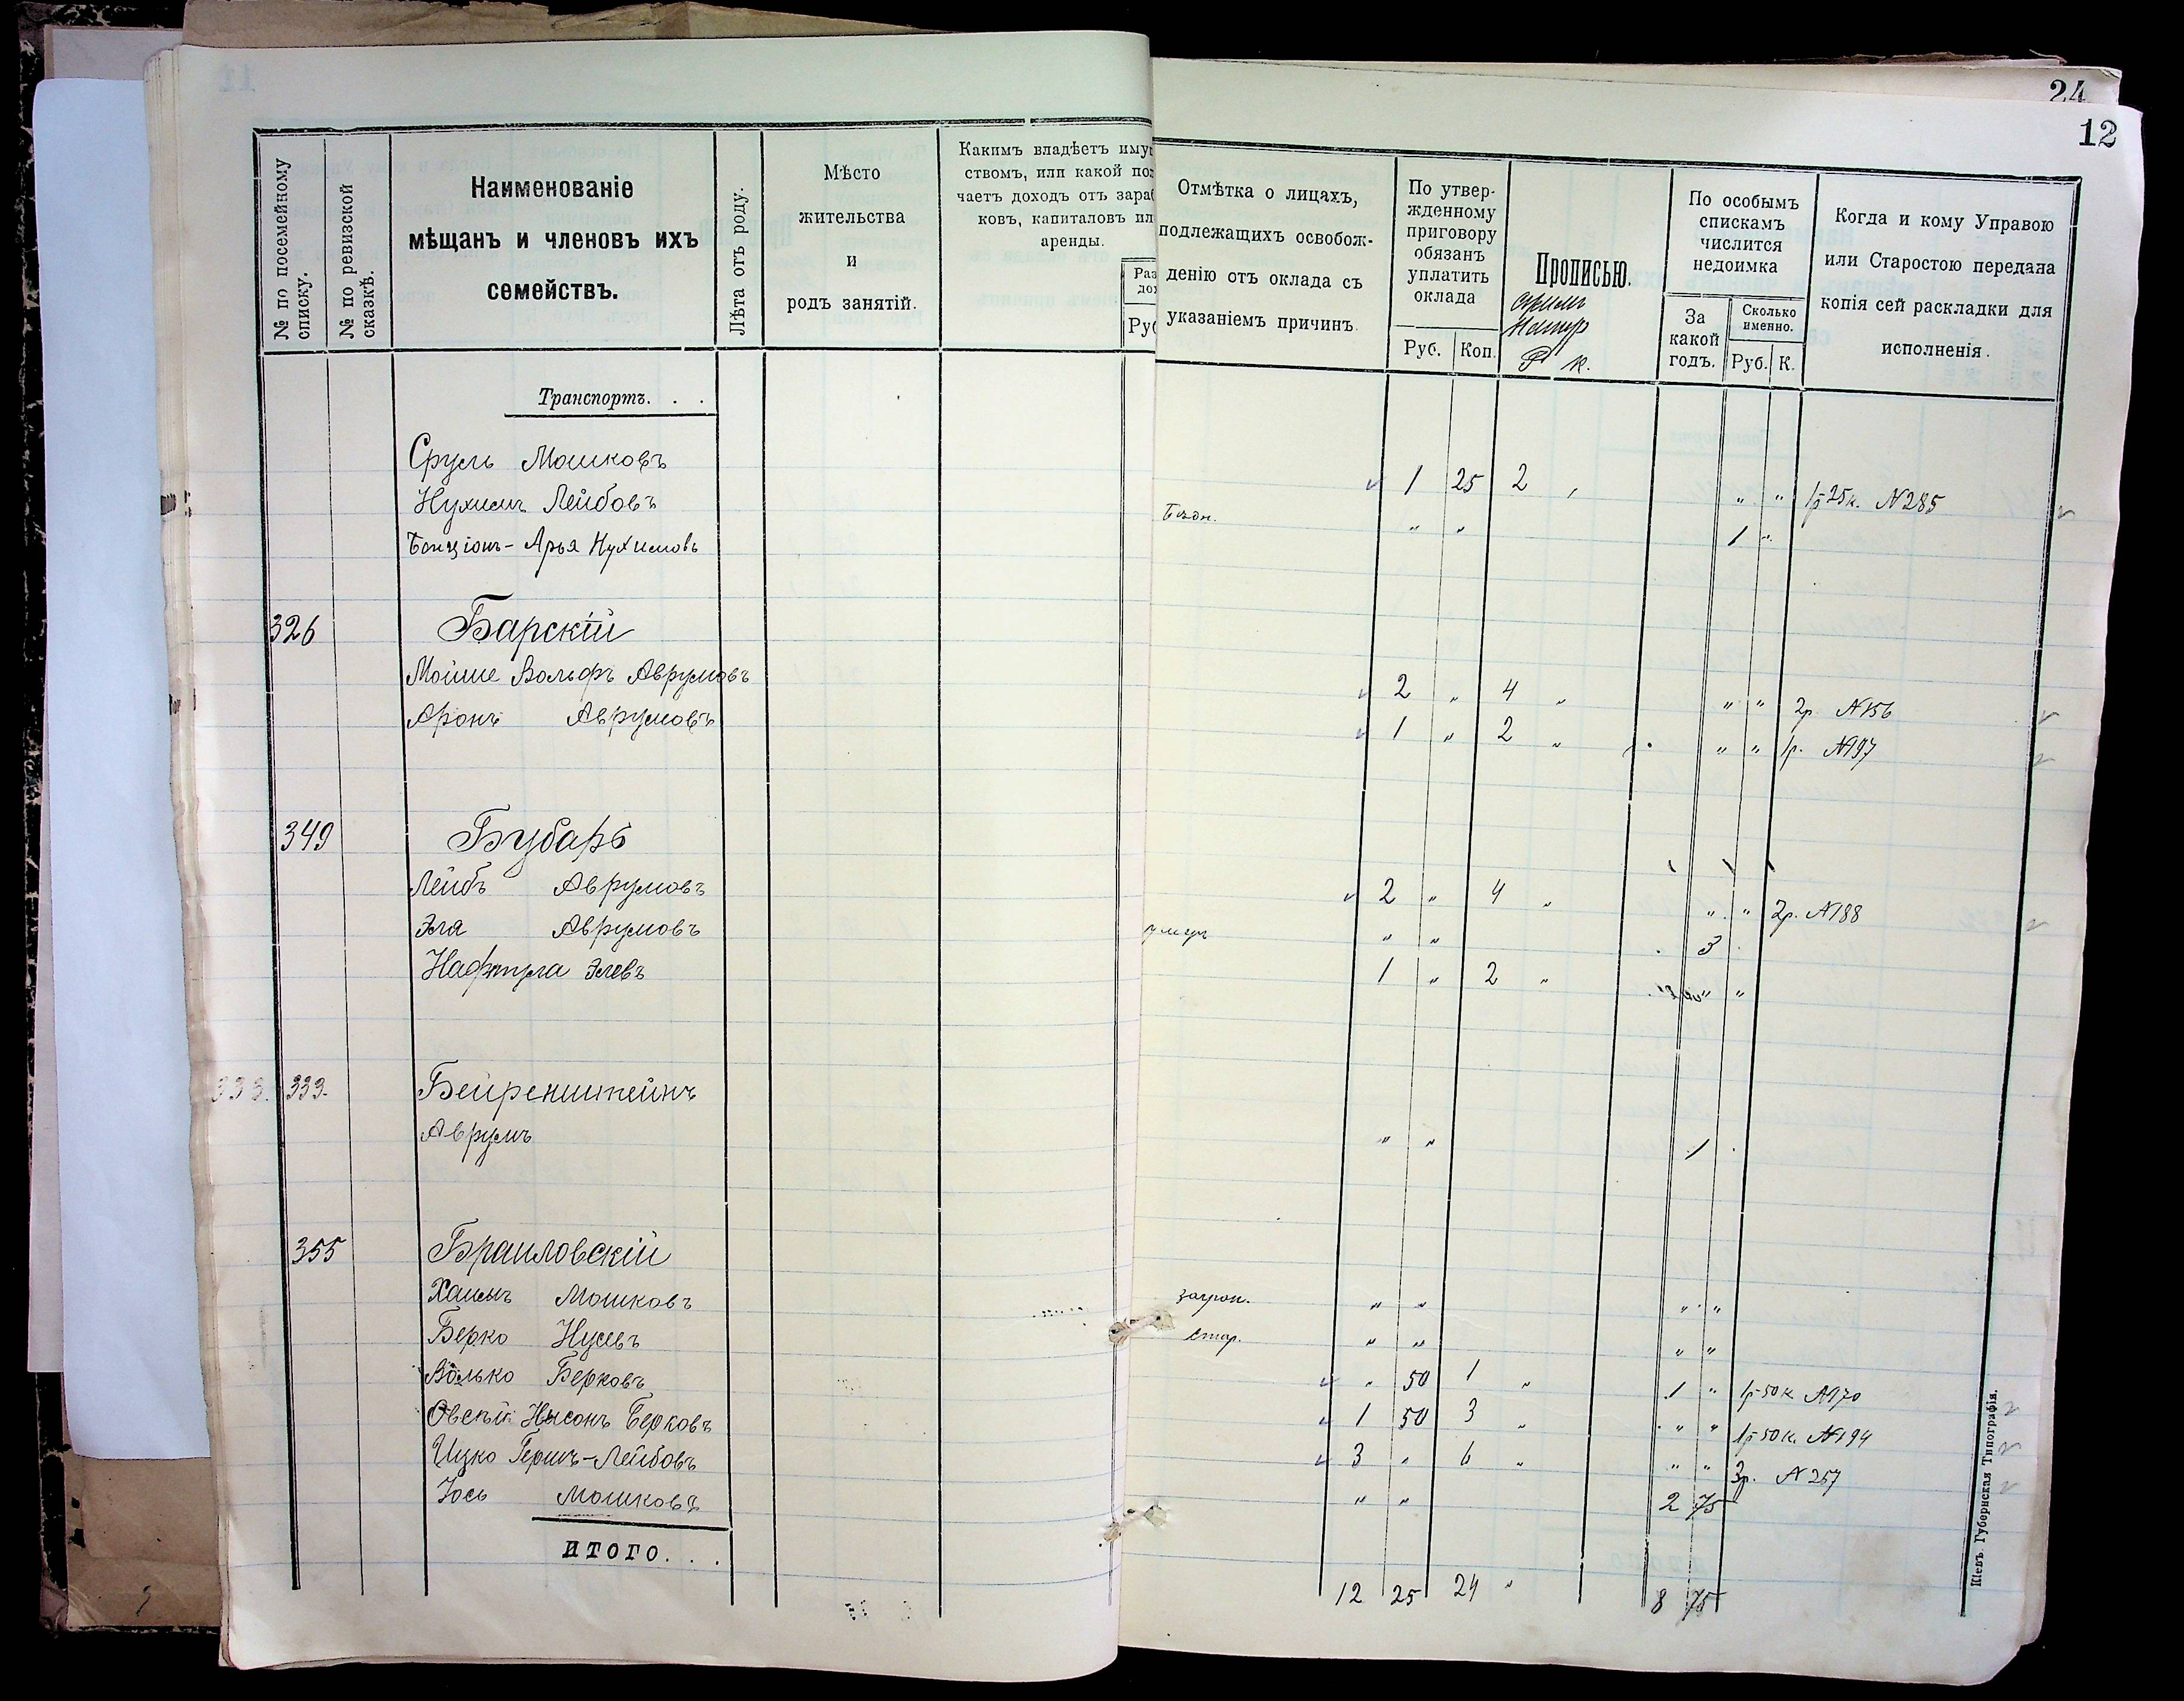 24
12
№ по посемейному списку.
№ по ревизской сказкѣ.
Наименованіе
мѣщанъ и членовъ ихъ
семействъ.
Лѣта отъ роду.
Мѣсто
жительства
и
родъ занятій.
Какимъ владѣетъ иму
ствомъ, или какой по
чаетъ доходъ отъ зара
ковъ, капиталовъ ил
аренды.
Раз
до
Ру
Отмѣтка о лицахъ,
подлежащихъ освобож-
денію отъ оклада съ
указаніемъ причинъ.
По утвер-
жденному
приговору
обязанъ
уплатить
оклада
Руб. Коп.
Прописью.
Р к.
По особымъ
спискамъ
числится
недоимка
За
какой
годъ.
Сколько
именно.
Руб. К.
Когда и кому Управою
или Старостою передана
копія сей раскладки для
исполненія.
Транспортъ. . .
Сруль Мошковъ 1 25 2 " " " 1р 25к. №285
Нухимъ Лейбовъ " " 1 "
Бенціонъ-Арья Нухимовъ
326 Барскій
Мойше Вольфъ Аврумовъ 2 " 4 " " " 2р №156
Аронъ Аврумовъ 1 " 2 " " " 1р. №197
349 Бубарь
Лейбъ Аврумовъ 2 " 4 " " " 2р. №188
Эля Аврумовъ " " 3
Нафтула Элевъ 1 " 2 " " "
333. 333. Бейренштейнъ
Аврумъ " " 1
355 Браиловскій
Хаимъ Мошковъ " " " "
Берко Нусевъ Стар. " " " "
Волько Берковъ " 50 1 " 1 " 1р 50к №170
Овсѣй Нысонъ Берковъ 1 50 3 " " " 1р 50к. №194
Ицко Гершъ-Лейбовъ 3 " 6 " " " 3р. №257
Іось Мошковъ " " 2 75
ИТОГО. . .
12 25 24 " 8 75
Кіевъ Губернская Типографія.